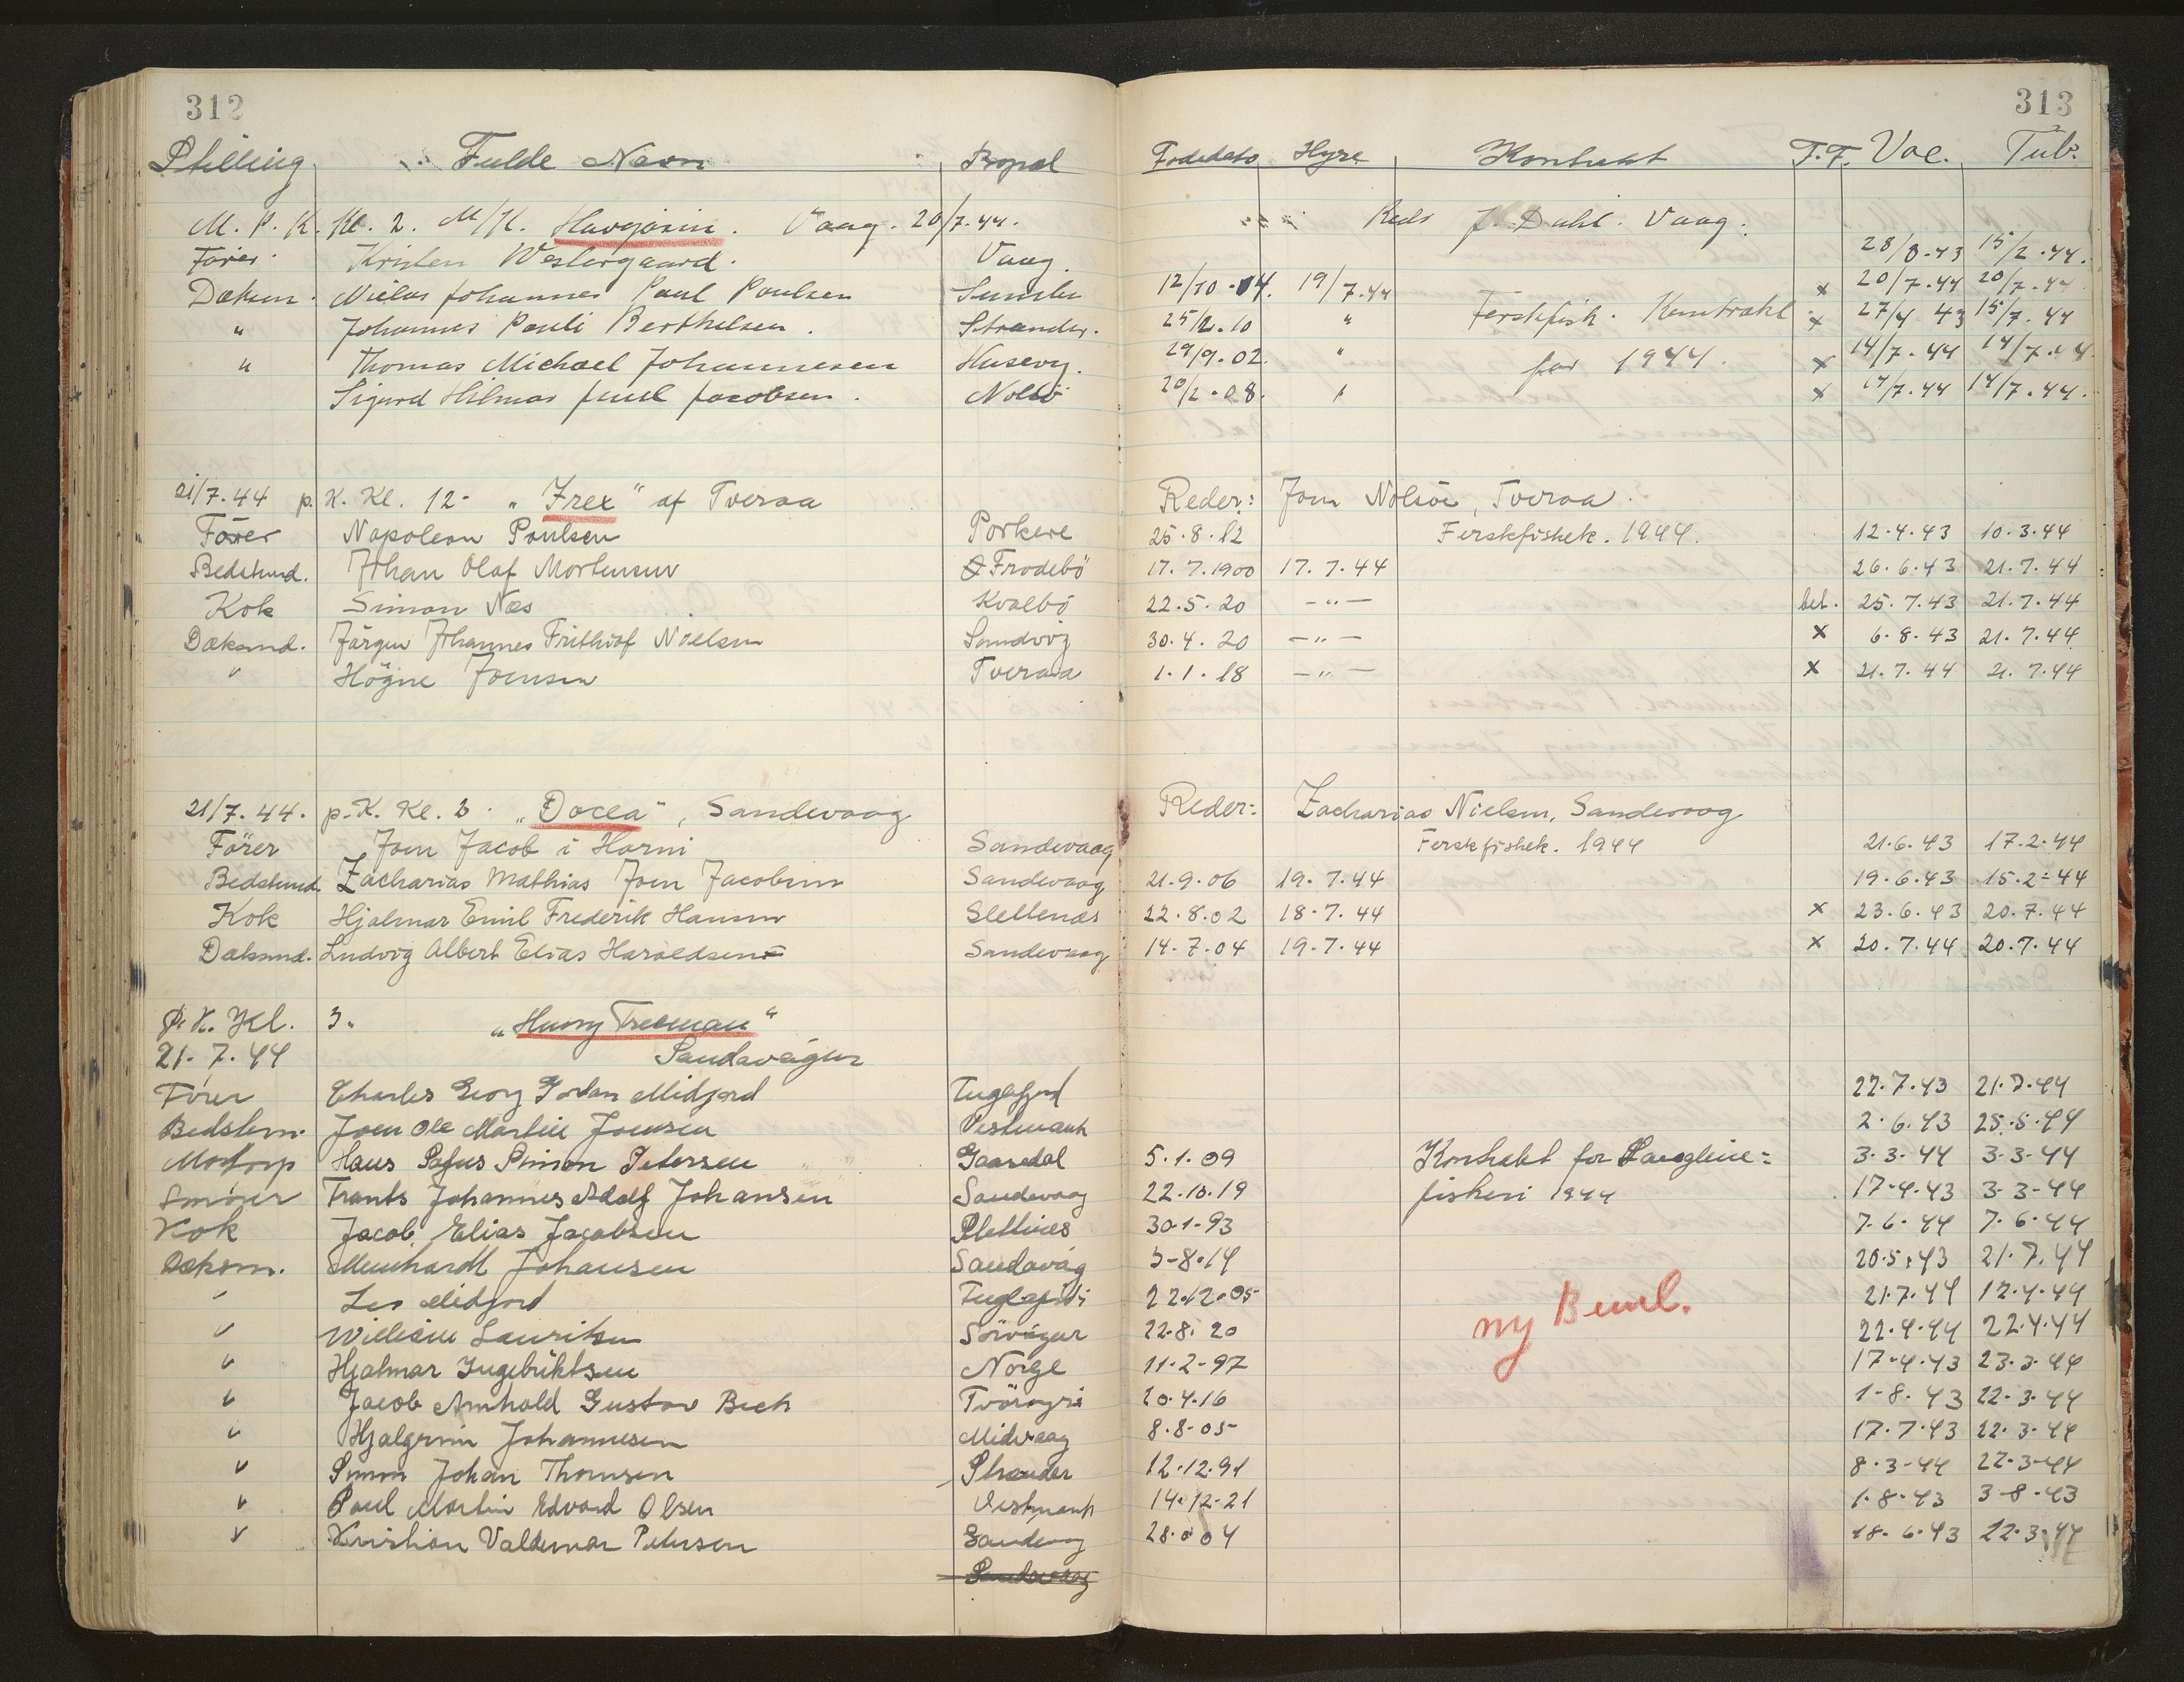 312
313
Stilling Fulde Navn Bopæl Fødedato Hyre Kontrakt T.F. Vac. Tub.
M. P. K. Kl. 2. M/K. Havgásin. Vaag. 20/7.44. J. Dahl. Vaag.
Fører. Kristen Westergaard. Vaag. 28/8.43 15/2.44.
Dæksm. Niclas Johannes Paul Poulsen Sumbø 12/10.04. 19/7.44 x 20/7.44 20/7.44
" Johannes Pauli Berthelsen. Strander. 25/2.10 " Ferskfisk. Kontrakt x 27/4 43 15/7.44
" Thomas Michael Johannesen Husevig. 29/9.02. " for 1944. x 14/7.44 14/7.44
Sigurd Hilmar Juul Jacobsen. Nolsö 20/2.08. " x 14/7.44 14/7.44.
21/7.44 p. K. Kl. 12- "Frex" af Tveraa Reder: Joen Nolsöe, Tveraa.
Förer Napoleon Poulsen Porkere 25.8.12 Ferskfiskek. 1944. 12.4.43 10.3.44
Bedstmd. Johan Olaf Mortensen Frodebö 17.7.1900 17.7.44 26.6.43 21.7.44
Kok Simon Næs Kvalbö 22.5.20 —"— bef. 25.7.43 21.7.44
Dæksmd. Jörgen Johannes Frithiof Nielsen Sandvig 30.4.20 —"— x 6.8.43 21.7.44
" Högne Joensen Tveraa 1.1.18 —"— x 21.7.44 21.7.44
21/7.44. p.K. Kl. 3. "Docea", Sandevaag Reder: Zacharias Nielsen, Sandevaag
Förer Joen Jacob i Horni Sandevaag Ferskfiskek. 1944 21.6.43 17.2.44
Bedstmd. Zacharias Mathias Joen Jacobsen Sandevaag 21.9.06 19.7.44 19.6.43 15.2-44
Kok Hjalmar Emil Frederik Hansen Slettenæs 22.8.02 18.7.44 x 23.6.43 20.7.44
Dæksmd. Ludvig Albert Elias Haraldsen Sandevaag 14.7.04 19.7.44 x 20.7.44 20.7.44
P. K. Kl. 3. "Harry Freeman"
21.7.44 Sandavágur
Förer Charles Georg Gordon Midjord Fuglefjord 22.7.43 21.7.44
Bedstem. Joen Ole Martin Joensen Vestmanh 2.6.43 25.5.44
Motorp Hans Simon Petersen Gaasedal 5.1.09 Kontrakt for Langline= 3.3.44 3.3.44
Smörer Frants Johannes Adolf Johansen Sandevaag 22.10.19 fiskeri 1944 17.4.43 3.3-44
Kok Jacob Elias Jacobsen Slettnes 30.1-93 7.6.44 7.6.44
Dæksm. Meinhardt Johansen Sandavág 5-8.14 20.5.43 21.7.44
" Leo Midjord Fuglafjørdi 22.12.05 21.7.44 12.4.44
" William Lauritsen Sörvágur 22.8.20 ny Beml. 22.4.44 22.4.44
" Hjalmar Ingebriktsen Norge 11.2-97 17.4.43 23.3.44
" Jacob Arnhold Gustav Bech Tvöroyri 20.4.16 1-8.43 22.3.44
" Hjalgrim Johannesen Midvaag 8.8-05 17.7.43 22.3-44
" Simon Johan Thomsen Strander 12.12.91 8.3-44 22.3-44
" Poul Martin Edvard Olsen Vestmanh 14.12-21 1.8.43 3-8.43
" Kristian Valdemar Petersen Sandevaag 18.6.43 22.3.44
Sandevaag